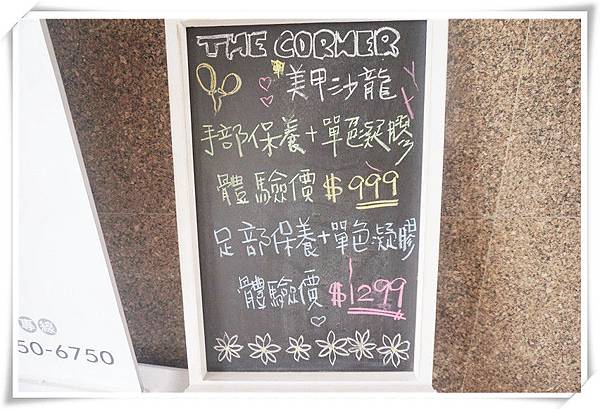 THE CORNER
美甲沙龍
手部保養+單色凝膠
體驗價$999
足部保養+單色凝膠
體驗價$1299
專線
50-6750